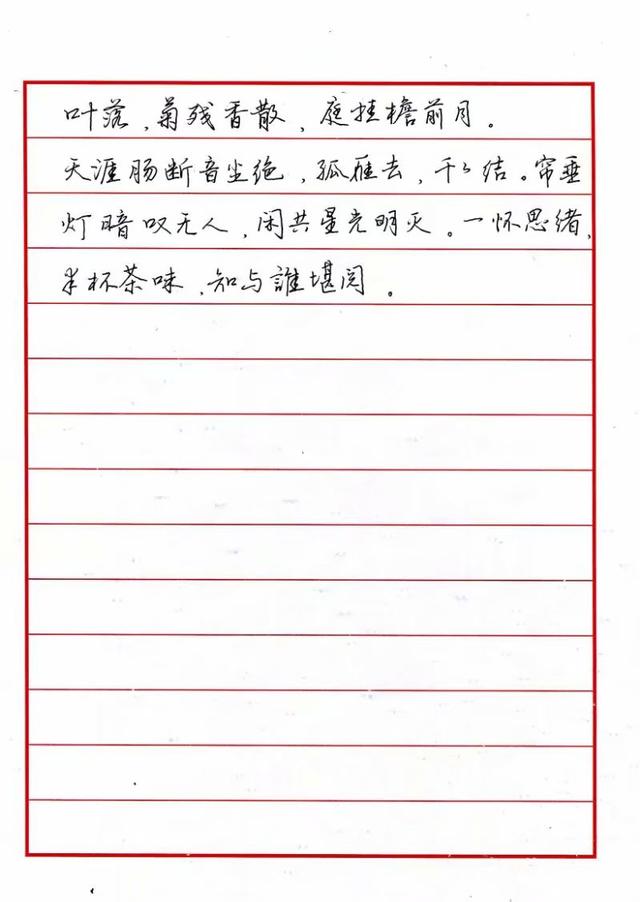 叶落,菊残香散,庭挂檐前月。
天涯肠断音尘绝,孤雁去,千千结。帘垂
灯暗叹无人,闲共星光明灭。一怀思绪,
半杯茶味,知与誰堪阅。